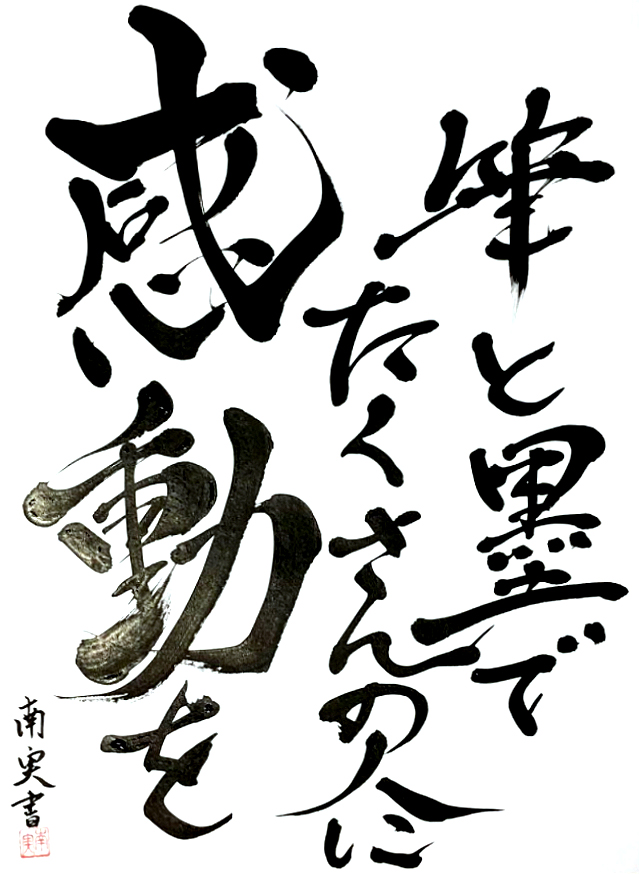 筆と墨で
たくさんの人に
感動を
南実書
南実